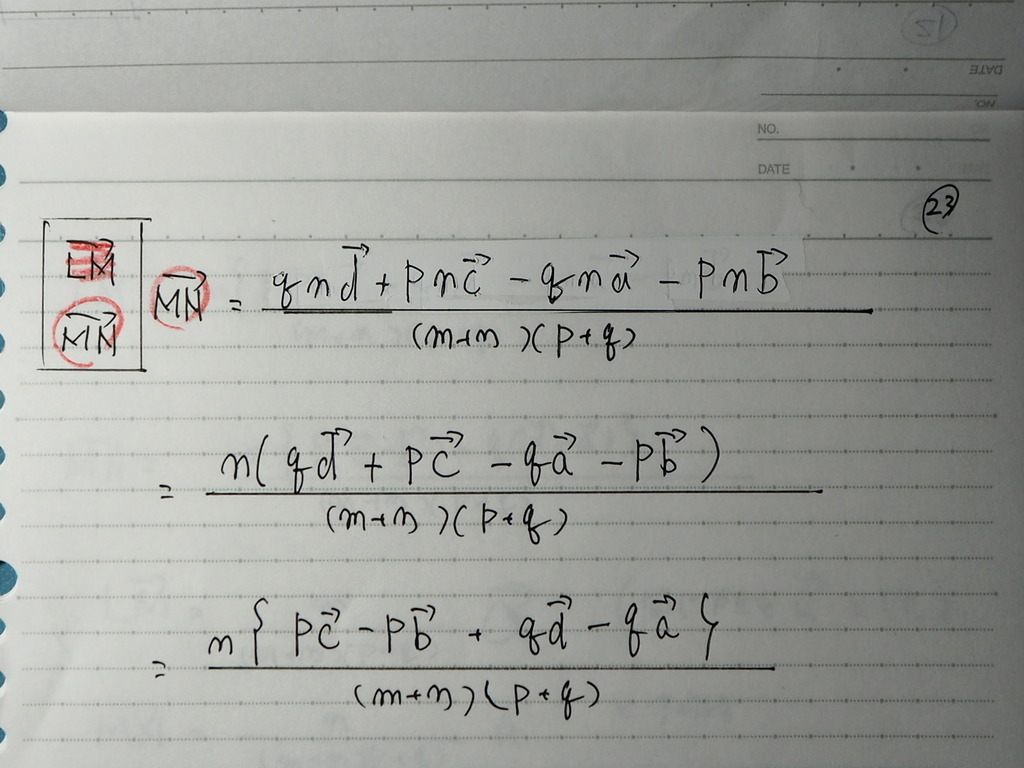 NO.
DATE
㉓
LM
MN⃗
MN⃗ = (qnd⃗ + pnc⃗ - qna⃗ - pnb⃗) / (m+n)(p+q)
= n(qd⃗ + pc⃗ - qa⃗ - pb⃗) / (m+n)(p+q)
= n{pc⃗ - pb⃗ + qd⃗ - qa⃗} / (m+n)(p+q)